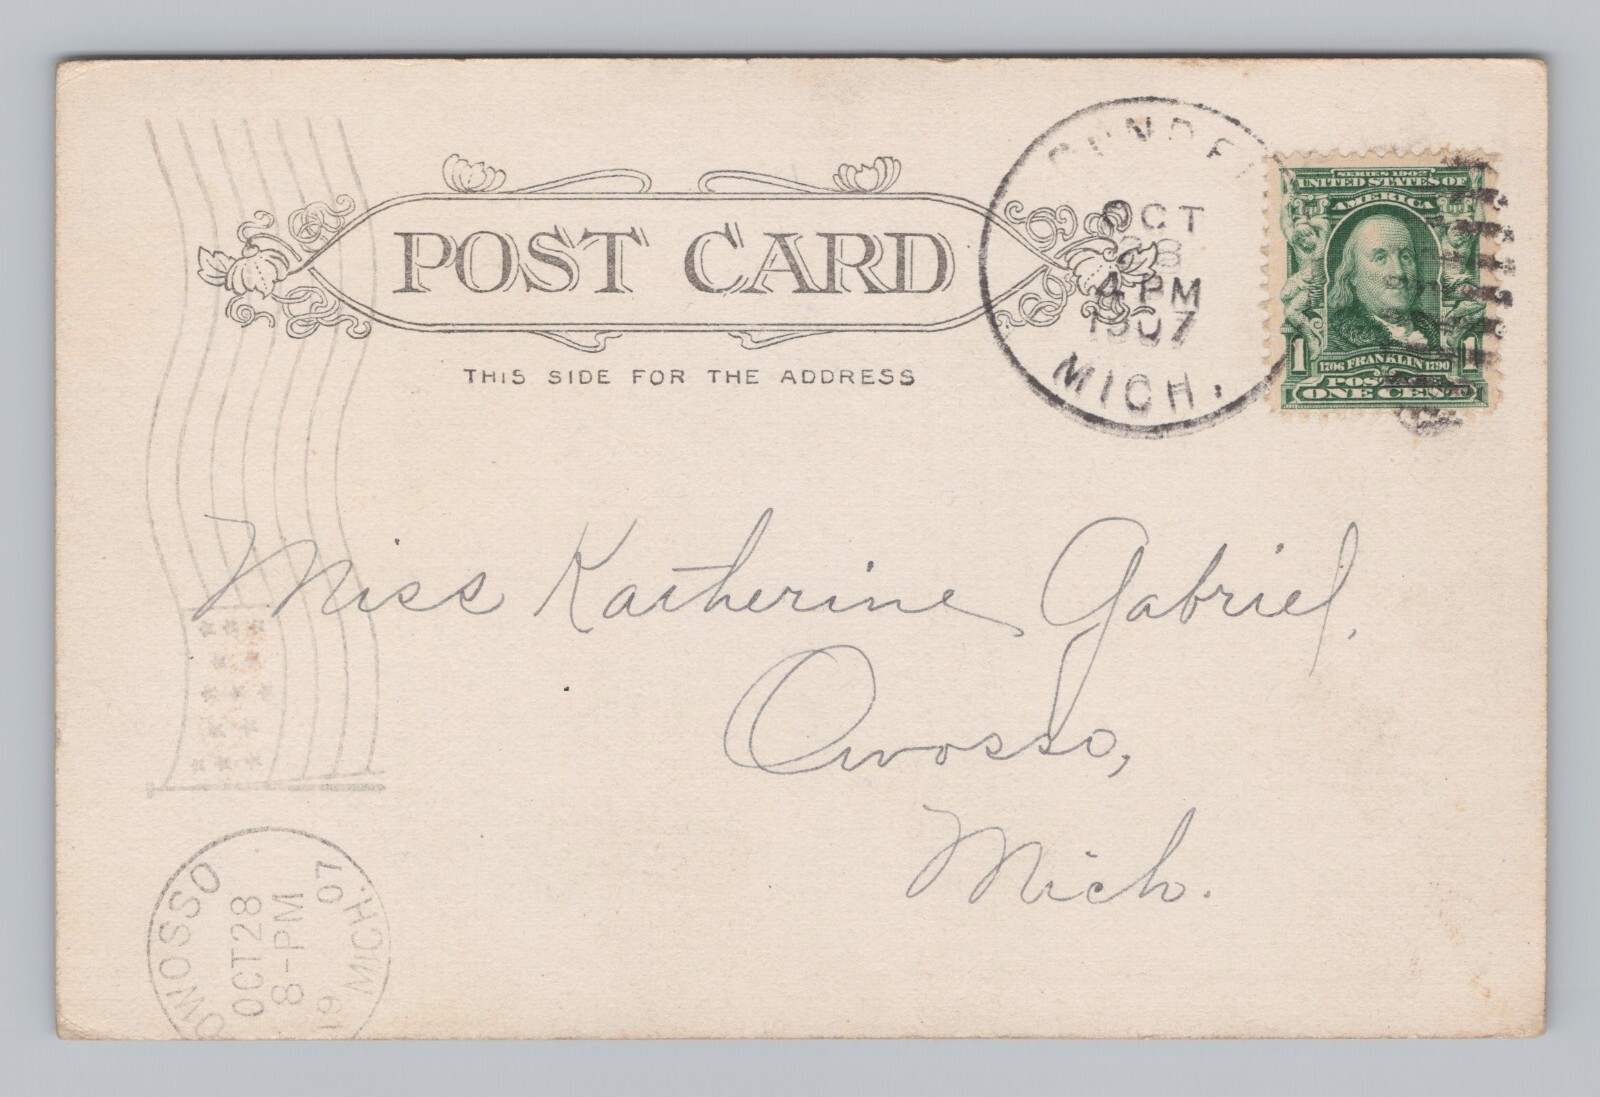 POST CARD
THIS SIDE FOR THE ADDRESS
OCT
28
4 PM
1907
MICH.
SERIES 1902
UNITED STATES OF
AMERICA
1 1
1706 FRANKLIN 1790
ONE CENT
Miss Katherine Gabriel,
Owosso,
Mich.
OWOSSO
OCT 28
8-PM
1907
MICH.